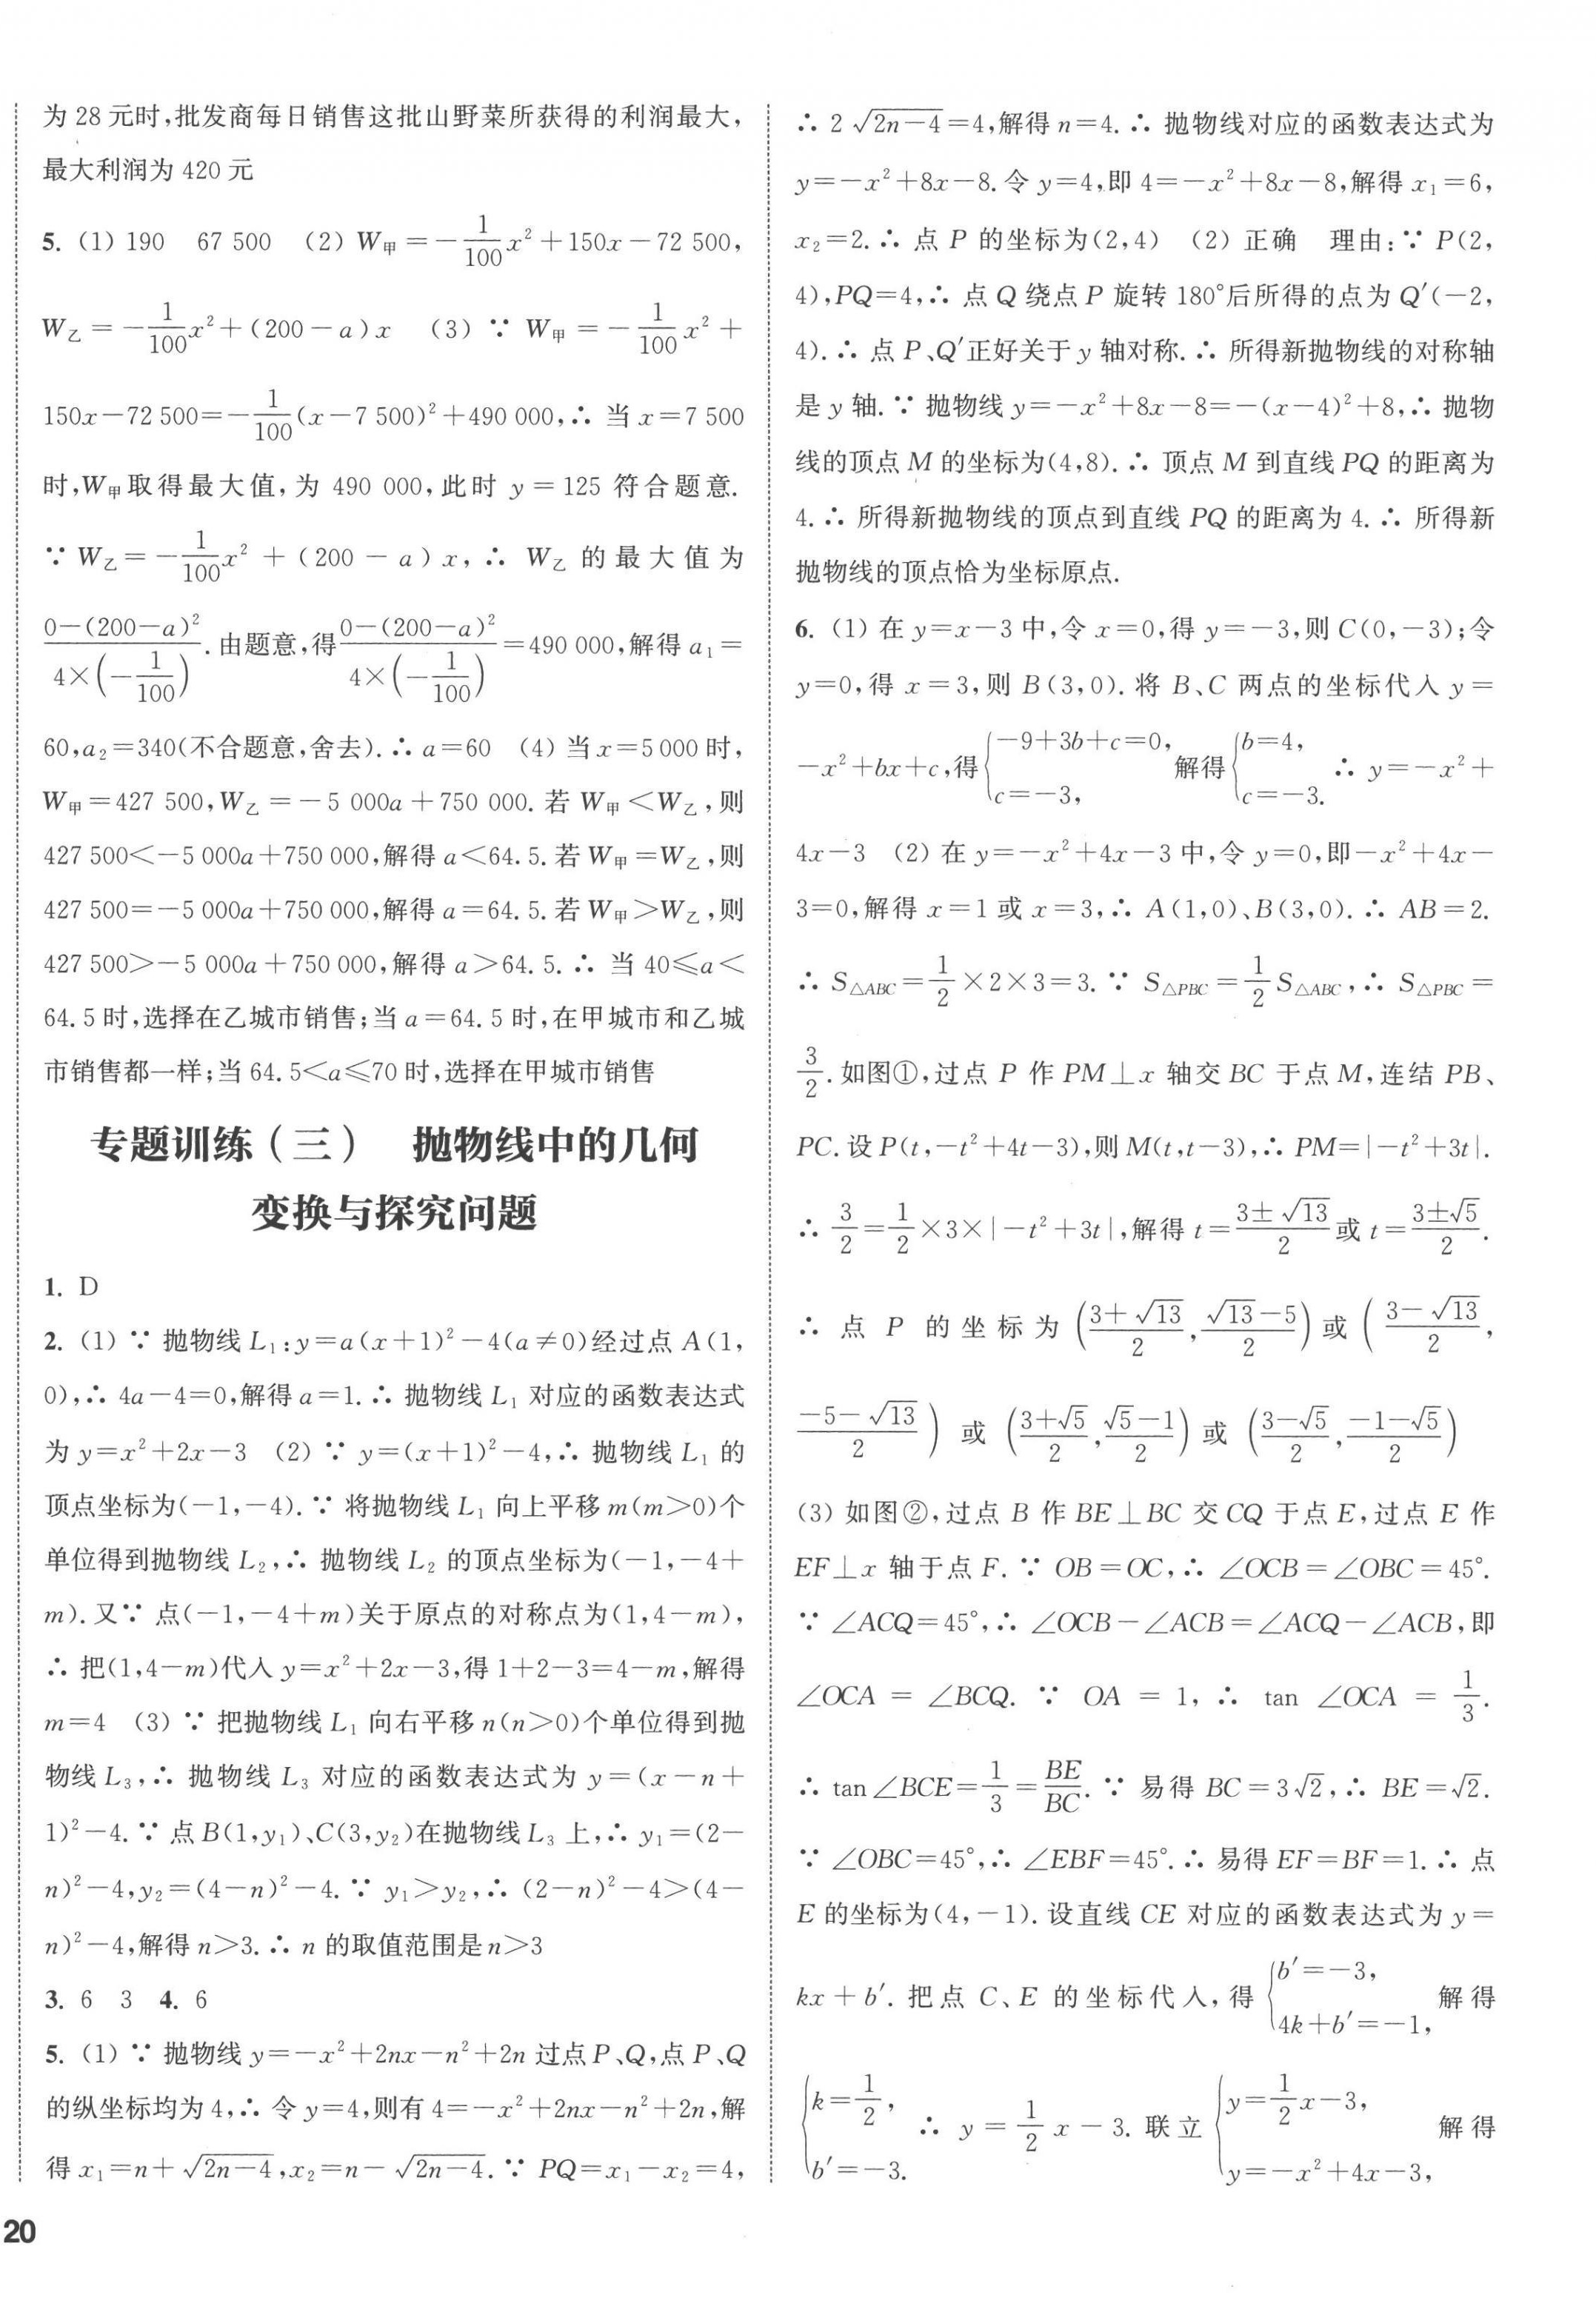 为 28 元时,批发商每日销售这批山野菜所获得的利润最大,
最大利润为 420 元
5. (1) 190　67 500　(2) W甲=-1/100x²+150x-72 500,
W乙=-1/100x²+(200-a)x　(3) ∵ W甲=-1/100x²+
150x-72 500=-1/100(x-7 500)²+490 000,∴ 当 x=7 500
时,W甲取得最大值,为 490 000,此时 y=125 符合题意.
∵ W乙=-1/100x²+(200-a)x,∴ W乙 的最大值为
(0-(200-a)²)/(4×(-1/100)).由题意,得(0-(200-a)²)/(4×(-1/100))=490 000,解得 a₁=
60,a₂=340(不合题意,舍去).∴ a=60　(4) 当 x=5 000 时,
W甲=427 500,W乙=-5 000a+750 000.若 W甲<W乙,则
427 500<-5 000a+750 000,解得 a<64.5.若 W甲=W乙,则
427 500=-5 000a+750 000,解得 a=64.5.若 W甲>W乙,则
427 500>-5 000a+750 000,解得 a>64.5.∴ 当 40≤a<
64.5 时,选择在乙城市销售;当 a=64.5 时,在甲城市和乙城
市销售都一样;当 64.5<a≤70 时,选择在甲城市销售
专题训练(三)　抛物线中的几何
变换与探究问题
1. D
2. (1) ∵ 抛物线 L₁:y=a(x+1)²-4(a≠0)经过点 A(1,
0),∴ 4a-4=0,解得 a=1.∴ 抛物线 L₁ 对应的函数表达式
为 y=x²+2x-3　(2) ∵ y=(x+1)²-4,∴ 抛物线 L₁ 的
顶点坐标为(-1,-4).∵ 将抛物线 L₁ 向上平移 m(m>0)个
单位得到抛物线 L₂,∴ 抛物线 L₂ 的顶点坐标为(-1,-4+
m).又∵ 点(-1,-4+m)关于原点的对称点为(1,4-m),
∴ 把(1,4-m)代入 y=x²+2x-3,得 1+2-3=4-m,解得
m=4　(3) ∵ 把抛物线 L₁ 向右平移 n(n>0)个单位得到抛
物线 L₃,∴ 抛物线 L₃ 对应的函数表达式为 y=(x-n+
1)²-4.∵ 点 B(1,y₁)、C(3,y₂)在抛物线 L₃ 上,∴ y₁=(2-
n)²-4,y₂=(4-n)²-4.∵ y₁>y₂,∴ (2-n)²-4>(4-
n)²-4,解得 n>3.∴ n 的取值范围是 n>3
3. 6　3　4. 6
5. (1) ∵ 抛物线 y=-x²+2nx-n²+2n 过点 P、Q,点 P、Q
的纵坐标均为 4,∴ 令 y=4,则有 4=-x²+2nx-n²+2n,解
得 x₁=n+√(2n-4),x₂=n-√(2n-4).∵ PQ=x₁-x₂=4,
20
∴ 2√(2n-4)=4,解得 n=4.∴ 抛物线对应的函数表达式为
y=-x²+8x-8.令 y=4,即 4=-x²+8x-8,解得 x₁=6,
x₂=2.∴ 点 P 的坐标为(2,4)　(2) 正确　理由:∵ P(2,
4),PQ=4,∴ 点 Q 绕点 P 旋转 180°后所得的点为 Q′(-2,
4).∴ 点 P、Q′正好关于 y 轴对称.∴ 所得新抛物线的对称轴
是 y 轴.∵ 抛物线 y=-x²+8x-8=-(x-4)²+8,∴ 抛物
线的顶点 M 的坐标为(4,8).∴ 顶点 M 到直线 PQ 的距离为
4.∴ 所得新抛物线的顶点到直线 PQ 的距离为 4.∴ 所得新
抛物线的顶点恰为坐标原点.
6. (1) 在 y=x-3 中,令 x=0,得 y=-3,则 C(0,-3);令
y=0,得 x=3,则 B(3,0).将 B、C 两点的坐标代入 y=
-x²+bx+c,得{-9+3b+c=0, c=-3, 解得{b=4, c=-3. ∴ y=-x²+
4x-3　(2) 在 y=-x²+4x-3 中,令 y=0,即-x²+4x-
3=0,解得 x=1 或 x=3,∴ A(1,0)、B(3,0).∴ AB=2.
∴ S△ABC=1/2×2×3=3.∵ S△PBC=1/2S△ABC,∴ S△PBC=
3/2.如图①,过点 P 作 PM⊥x 轴交 BC 于点 M,连结 PB、
PC.设 P(t,-t²+4t-3),则 M(t,t-3),∴ PM=|-t²+3t|.
∴ 3/2=1/2×3×|-t²+3t|,解得 t=(3±√13)/2 或 t=(3±√5)/2.
∴ 点 P 的坐标为((3+√13)/2,(√13-5)/2)或((3-√13)/2,
(-5-√13)/2)或((3+√5)/2,(√5-1)/2)或((3-√5)/2,(-1-√5)/2)
(3) 如图②,过点 B 作 BE⊥BC 交 CQ 于点 E,过点 E 作
EF⊥x 轴于点 F.∵ OB=OC,∴ ∠OCB=∠OBC=45°.
∵ ∠ACQ=45°,∴ ∠OCB-∠ACB=∠ACQ-∠ACB,即
∠OCA=∠BCQ.∵ OA=1,∴ tan ∠OCA=1/3.
∴ tan∠BCE=1/3=BE/BC.∵ 易得 BC=3√2,∴ BE=√2.
∵ ∠OBC=45°,∴ ∠EBF=45°.∴ 易得 EF=BF=1.∴ 点
E 的坐标为(4,-1).设直线 CE 对应的函数表达式为 y=
kx+b′.把点 C、E 的坐标代入,得{b′=-3, 4k+b′=-1, 解得
{k=1/2, b′=-3. ∴ y=1/2x-3.联立{y=1/2x-3, y=-x²+4x-3, 解得